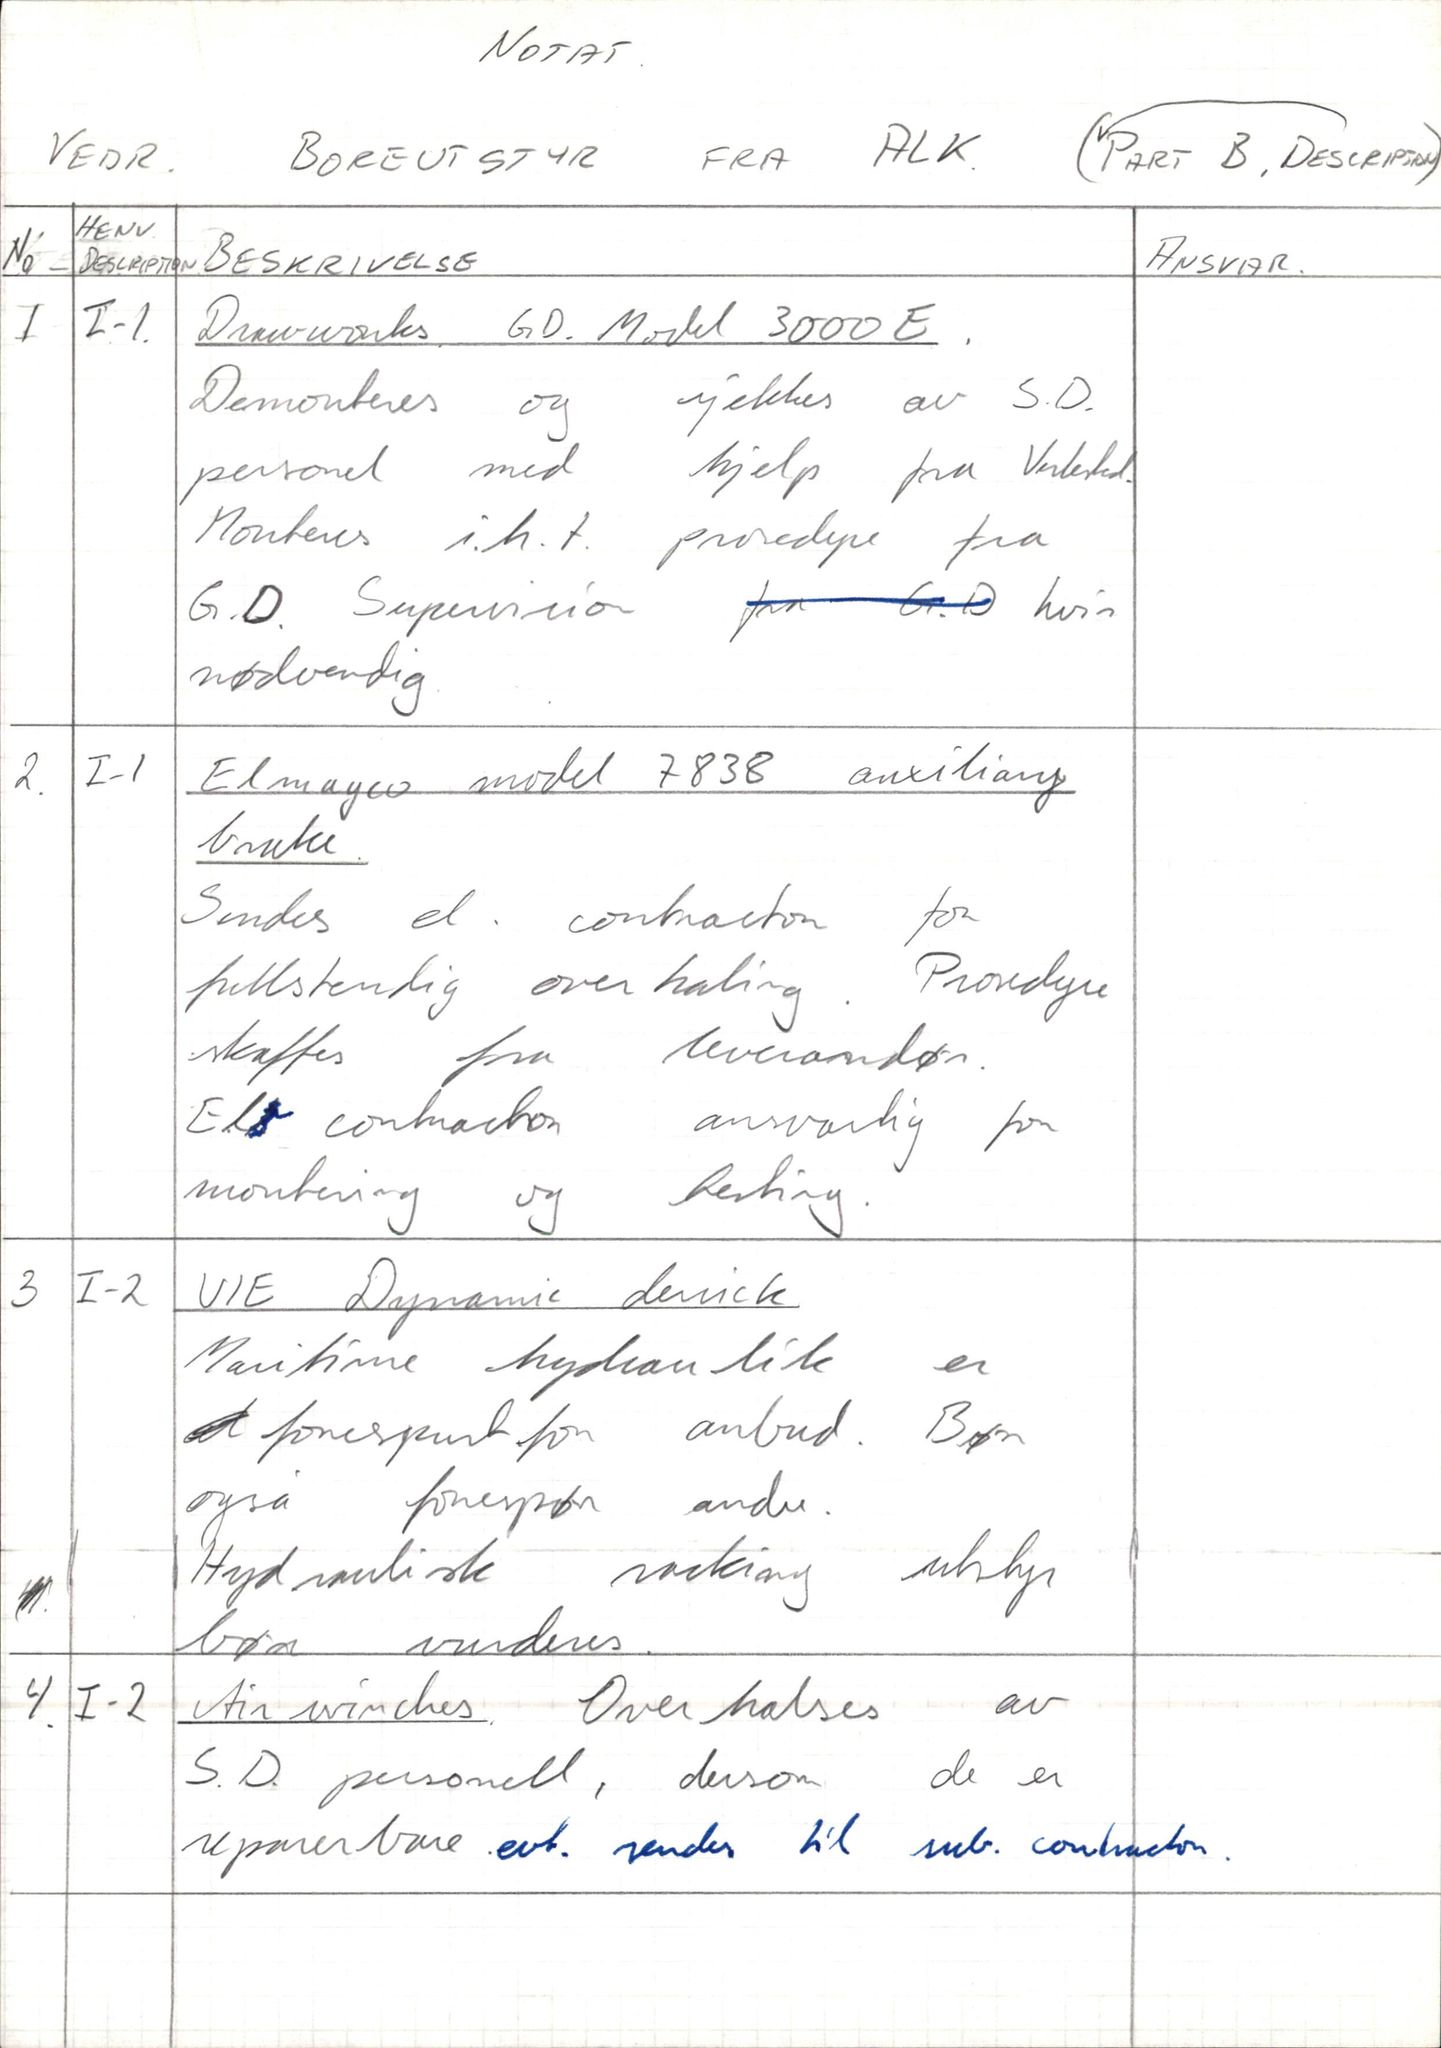 NOTAT.
VEDR. BOREUTSTYR FRA ALK. (PART B, DESCRIPTION)
No HENV. DESCRIPTION BESKRIVELSE ANSVAR.
I I-1. Drawworks GD. Model 3000 E.
Demonteres og sjekkes av S.D.
personel med hjelp fra Verksted.
Monteres i.h.t. prosedyre fra
G.D. Supervision fra G.D hvis
nødvendig.
2. I-1 Elmagco model 7838 auxiliary
brake.
Sendes el. contractor for
fullstendig overhaling. Prosedyre
skaffes fra leverandør.
El contractor ansvarlig for
montering og testing.
3 I-2 VIE Dynamic derrick
Maritime hydraulik er
forespurt for anbud. Bør
også forespør andre.
Hydraulisk racking utstyr
bør vurderes.
4. I-2 Air winches. Overhalses av
S.D. personell, dersom de er
reparerbare evt. sendes til sub. contractor.